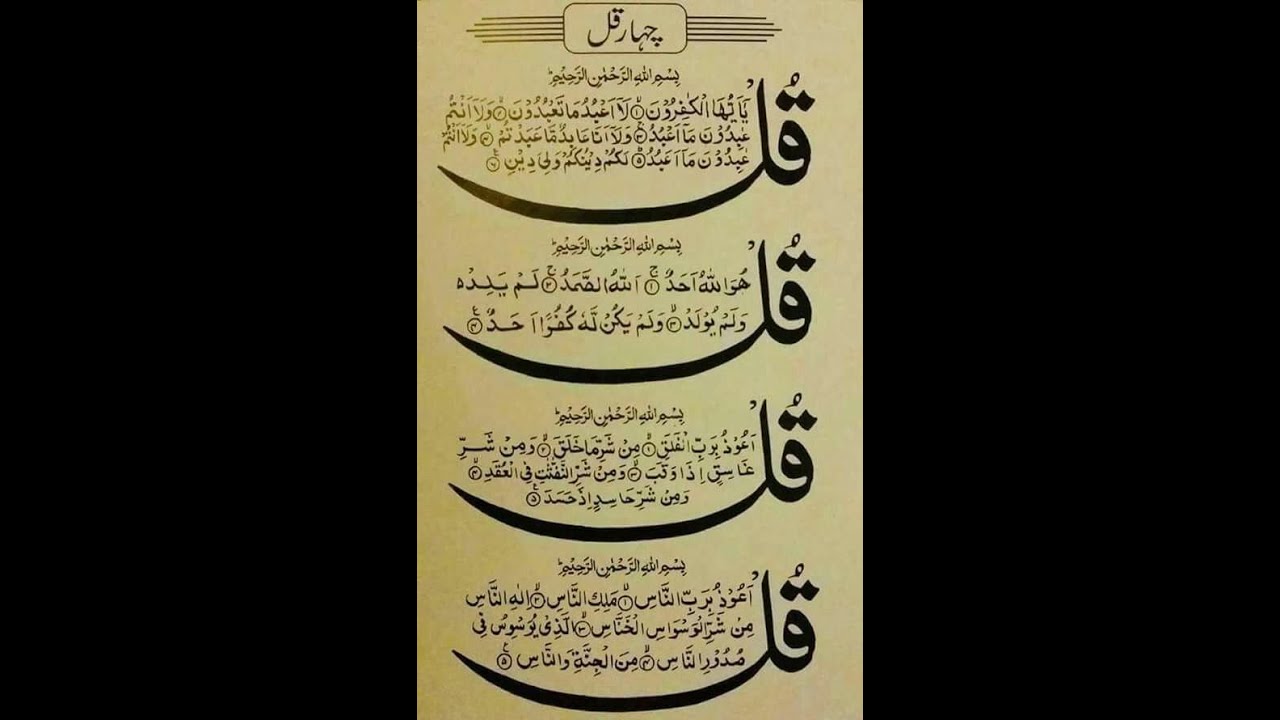 چہار قل
بِسْمِ اللهِ الرَّحْمٰنِ الرَّحِيْمِ
قُلْ
يٰۤاَيُّهَا الْكٰفِرُوْنَ ۙ‏﴿۱﴾ لَاۤ اَعْبُدُ مَا تَعْبُدُوْنَ ۙ‏﴿۲﴾ وَلَاۤ اَنْتُمْ
عٰبِدُوْنَ مَاۤ اَعْبُدُ ۚ‏﴿۳﴾ وَلَاۤ اَنَا عَابِدٌ مَّا عَبَدْتُّمْ ۙ‏﴿۴﴾ وَلَاۤ اَنْتُمْ
عٰبِدُوْنَ مَاۤ اَعْبُدُ ؕ‏﴿۵﴾ لَكُمْ دِيْنُكُمْ وَلِيَ دِيْنِ ﴿۶﴾
بِسْمِ اللهِ الرَّحْمٰنِ الرَّحِيْمِ
قُلْ
هُوَ اللهُ اَحَدٌ ۚ‏﴿۱﴾ اَللهُ الصَّمَدُ ۚ‏﴿۲﴾ لَمْ يَلِدْ ۙ
وَلَمْ يُوْلَدْ ۙ‏﴿۳﴾ وَلَمْ يَكُنْ لَّهٗ كُفُوًا اَحَدٌ ﴿۴﴾
بِسْمِ اللهِ الرَّحْمٰنِ الرَّحِيْمِ
قُلْ
اَعُوْذُ بِرَبِّ الْفَلَقِ ۙ‏﴿۱﴾ مِنْ شَرِّ مَا خَلَقَ ۙ‏﴿۲﴾ وَمِنْ شَرِّ
غَاسِقٍ اِذَا وَقَبَ ۙ‏﴿۳﴾ وَمِنْ شَرِّ النَّفّٰثٰتِ فِي الْعُقَدِ ۙ‏﴿۴﴾
وَمِنْ شَرِّ حَاسِدٍ اِذَا حَسَدَ ﴿۵﴾
بِسْمِ اللهِ الرَّحْمٰنِ الرَّحِيْمِ
قُلْ
اَعُوْذُ بِرَبِّ النَّاسِ ۙ‏﴿۱﴾ مَلِكِ النَّاسِ ۙ‏﴿۲﴾ اِلٰهِ النَّاسِ
مِنْ شَرِّ الْوَسْوَاسِ الْخَنَّاسِ ۙ‏﴿۳﴾ الَّذِيْ يُوَسْوِسُ فِيْ
صُدُوْرِ النَّاسِ ۙ‏﴿۴﴾ مِنَ الْجِنَّةِ وَالنَّاسِ ﴿۵﴾